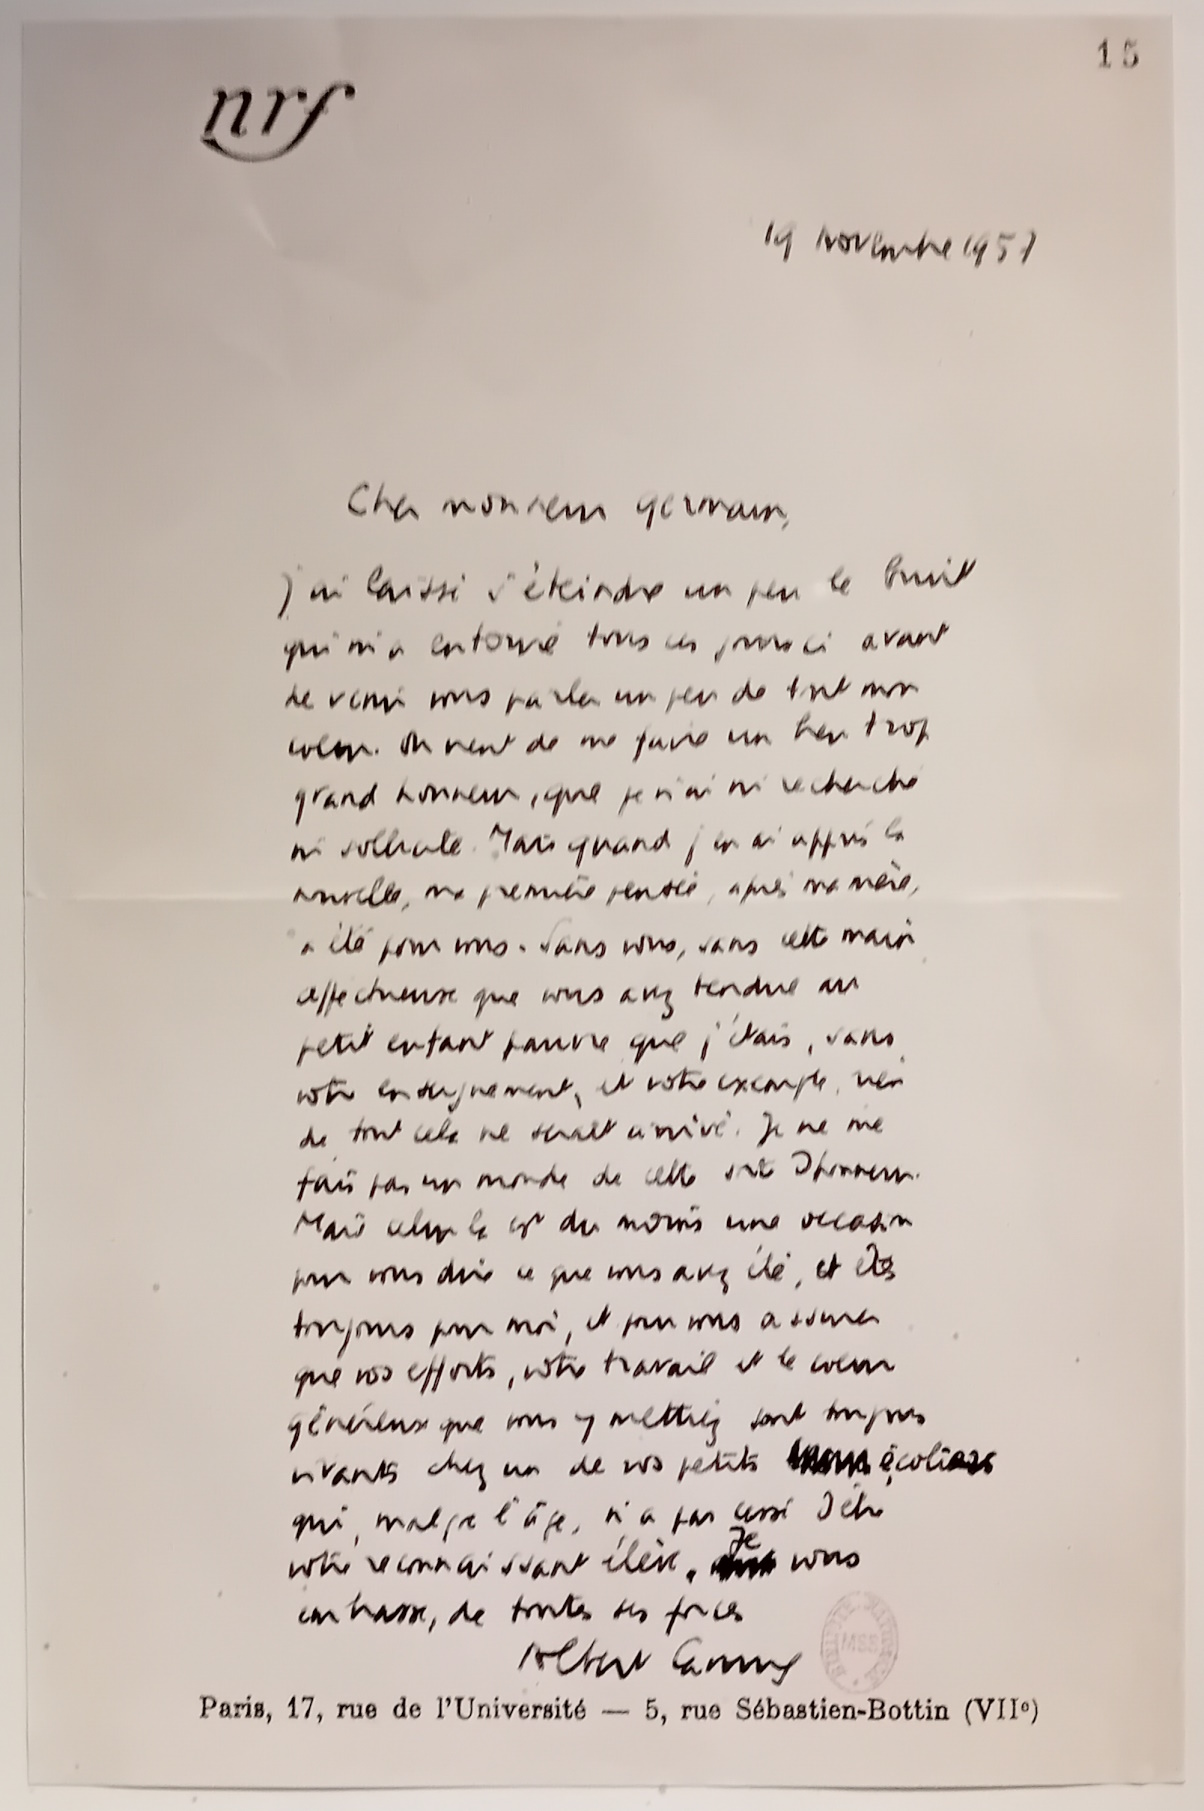 15
nrf
19 novembre 1957
Cher monsieur germain,
J'ai laissé s'éteindre un peu le bruit
qui m'a entouré tous ces jours ci avant
de venir vous parler un peu de tout mon
coeur. On vient de me faire un bien trop
grand honneur, que je n'ai ni recherché
ni sollicité. Mais quand j'en ai appris la
nouvelle, ma première pensée, après ma mère,
a été pour vous. Sans vous, sans cette main
affectueuse que vous avez tendue au
petit enfant pauvre que j'étais, sans
votre enseignement, et votre exemple, rien
de tout cela ne serait arrivé. Je ne me
fais pas un monde de cette sorte d'honneur.
Mais celui là est du moins une occasion
pour vous dire ce que vous avez été, et êtes
toujours pour moi, et pour vous assurer
que vos efforts, votre travail et le coeur
généreux que vous y mettiez sont toujours
vivants chez un de vos petits écoliers
qui, malgré l'âge, n'a pas cessé d'être
votre reconnaissant élève. Je vous
embrasse, de toutes ses forces
Albert Camus
MSS
Paris, 17, rue de l'Université — 5, rue Sébastien-Bottin (VIIe)